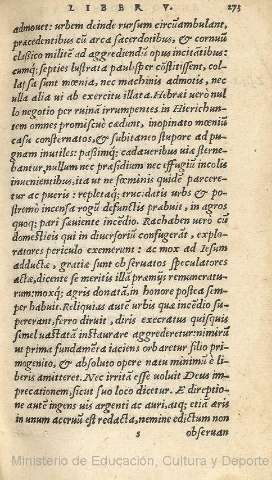 LIBER V. 275
admouet: urbem deinde rursum circũambulant,
præcedentibus cũ arca sacerdotibus, & cornuũ
clasico militẽ ad aggrediendũ opus incitãtibus:
cumq́; septies lustrata paulisper cõstitissent, col-
lat sa sunt mœnia, nec machinis admotis, nec
ulla alia ui ab exercitu illata. Hebræi uerò nul
lo negotio per ruinã irrumpentes in Hierichun-
tem omnes promiscuè cædunt, inopinato mœniũ
casu consternatos, & subitaneo stupore ad pu-
gnam inutiles: paßimq́; cadaueribus uia sterne-
bantur, nullum nec præsidium nec effugiũ incolis
inuenientibus, ita ut ne fœminis quidẽ parcere-
tur ac pueris: repletaq́; trucidatis urbs & po-
stremò incensa rogũ defunctis præbuit, in agros
quoq; pari sæuiente incẽdio. Rachaben uerò cũ
domesticis qui in diuersoriũ confugerãt, explo-
ratores periculo exemerunt: ac mox ad Iesum
adductæ, gratiæ sunt ob seruatos speculatores
actæ, dicente se meritis illã præmijs remuneratu-
rum: moxq́; agris donatã, in honore postea sem-
per habuit. Reliquias autẽ urbis quæ incẽdio su-
pererant, ferro diruit, diris execratus quisquis
semel uastatã instaurare aggrederetur: nimirũ
ut prima fundamẽta iaciens orbaretur filio pri-
mogenito, & absoluto opere natu minimũ è li-
beris amitteret. Nec irritã esse uoluit Deus im-
precationem, sicut suo loco dicetur. E direptio-
ne autẽ ingens uis argenti ac auri, atq; etiã æris
in unum aceruũ est redacta, nemine edictum non
s obseruan
Ministerio de Educación, Cultura y Deporte